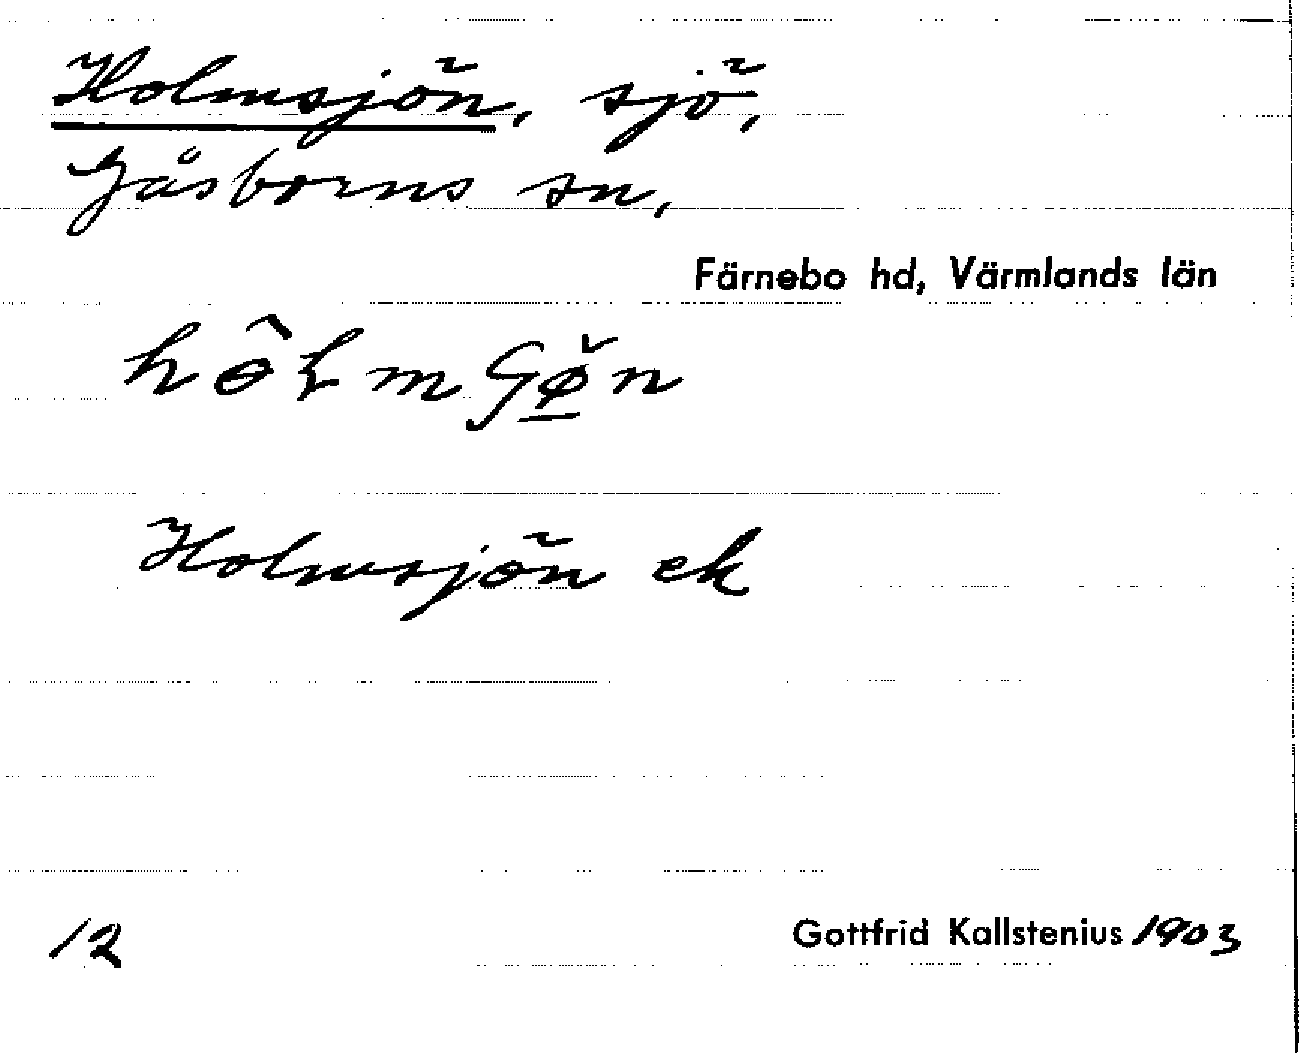 Holmsjön, sjö,
Gåsborns sn,
Färnebo hd, Värmlands län
Holmsjön ek
12
Gottfrid Kallstenius 1903